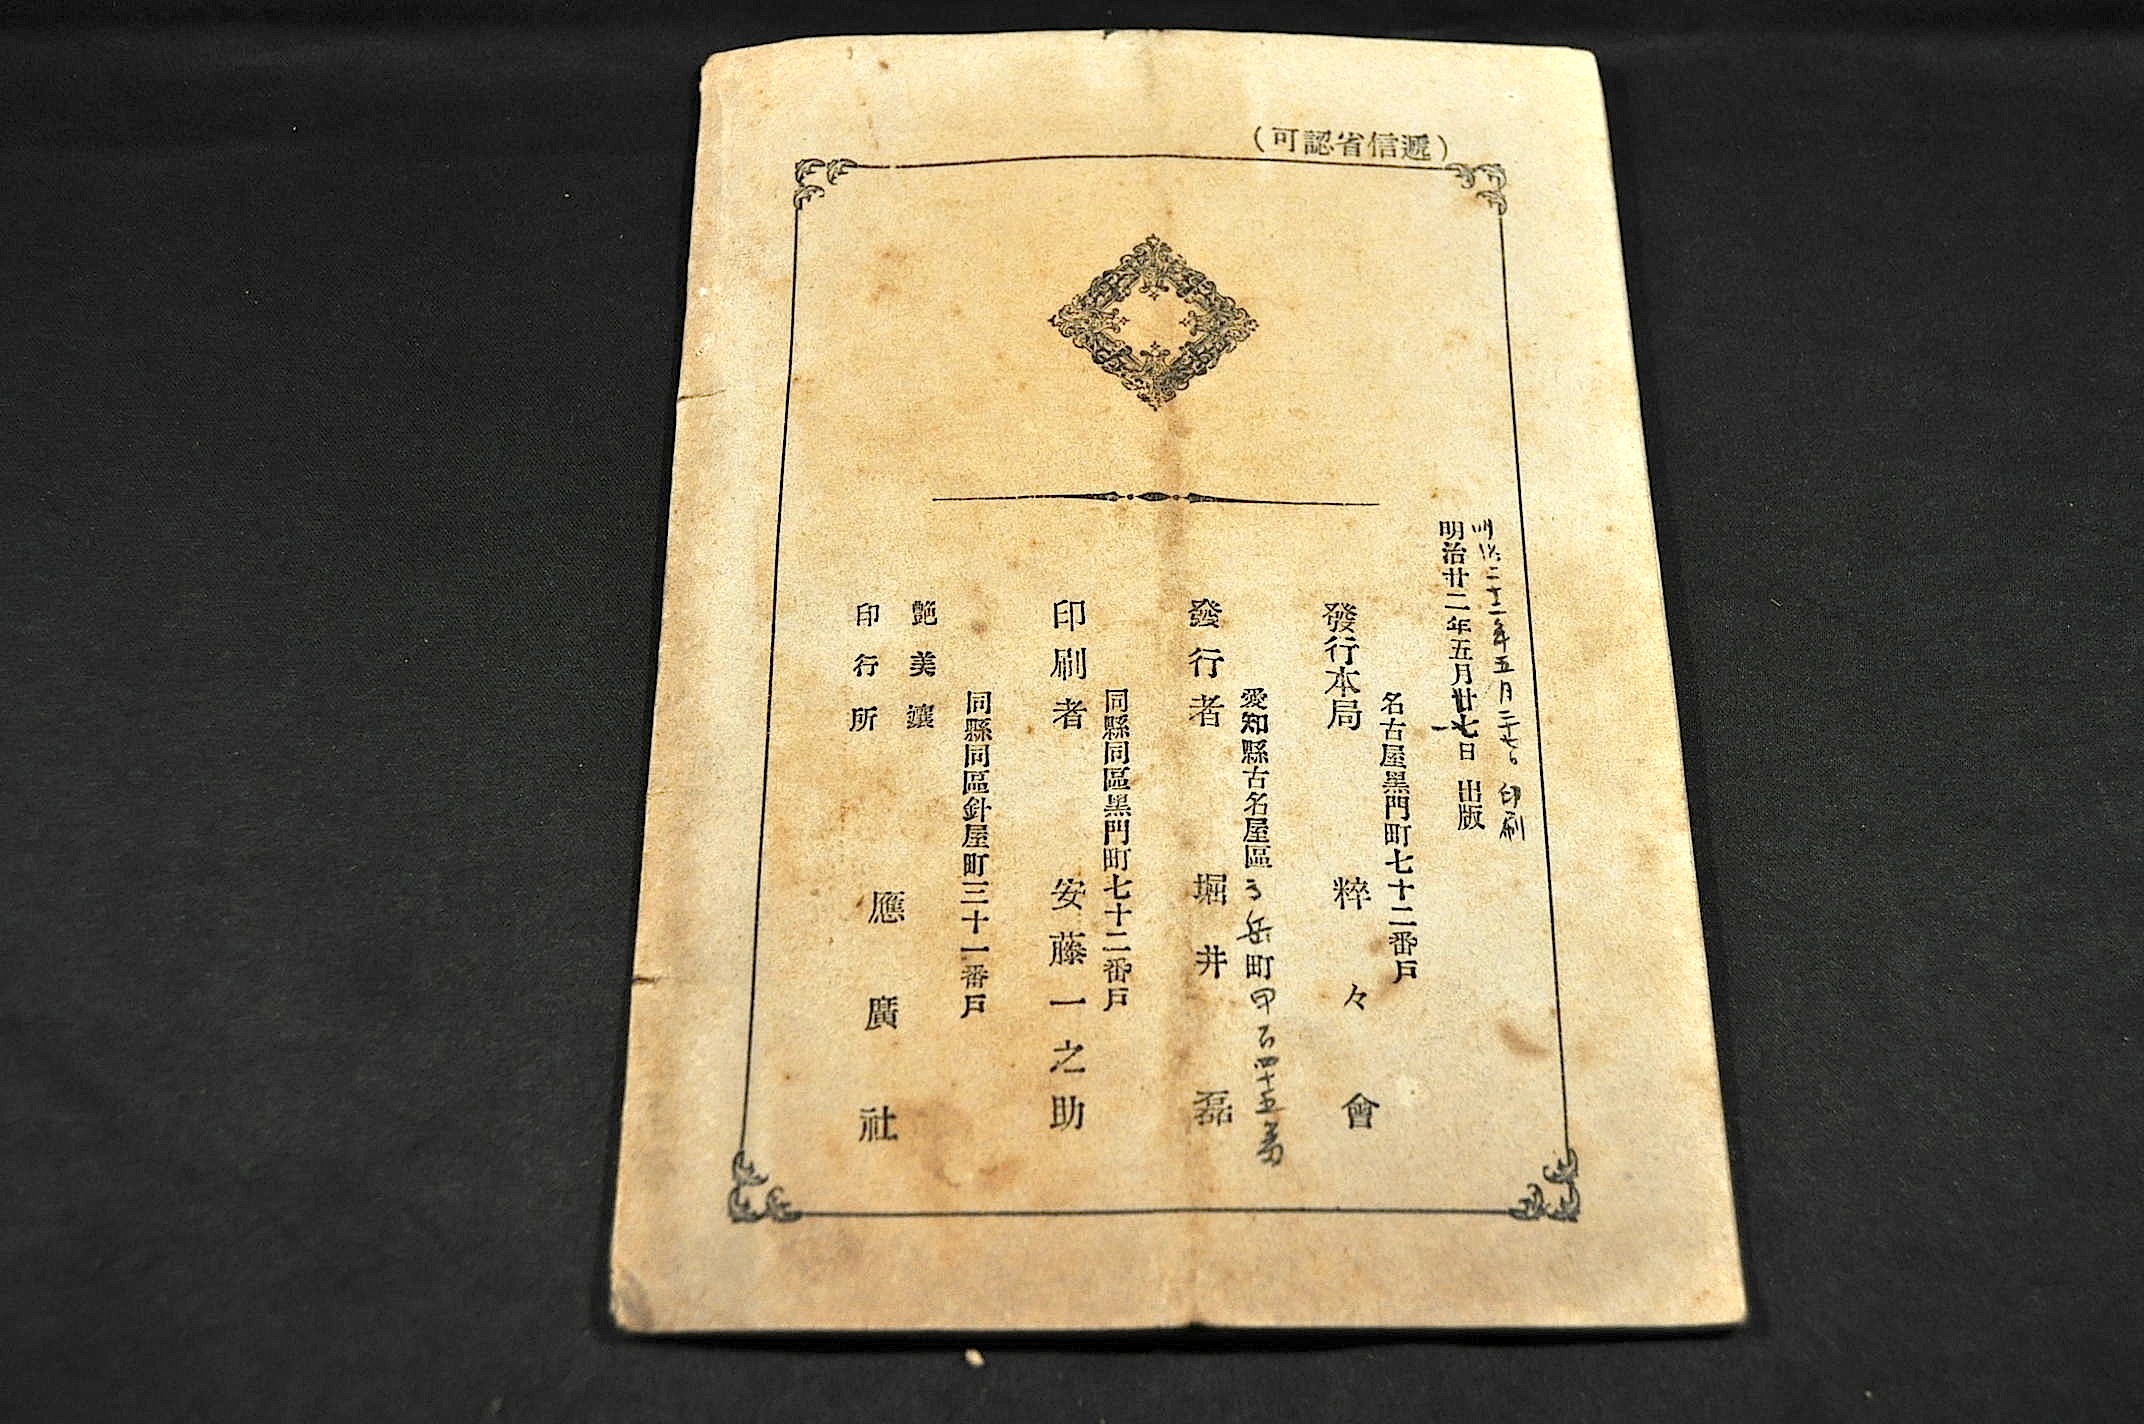 (遞信省認可)
明治二十二年五月二十七日印刷
明治廿二年五月廿七日出版
名古屋黑門町七十二番戶
發行本局 粹々會
愛知縣古名屋區 町甲百四十五番
發行者 堀井磊
同縣同區黑門町七十二番戶
印刷者 安藤一之助
同縣同區針屋町三十一番戶
艶美讓
印行所 應廣社